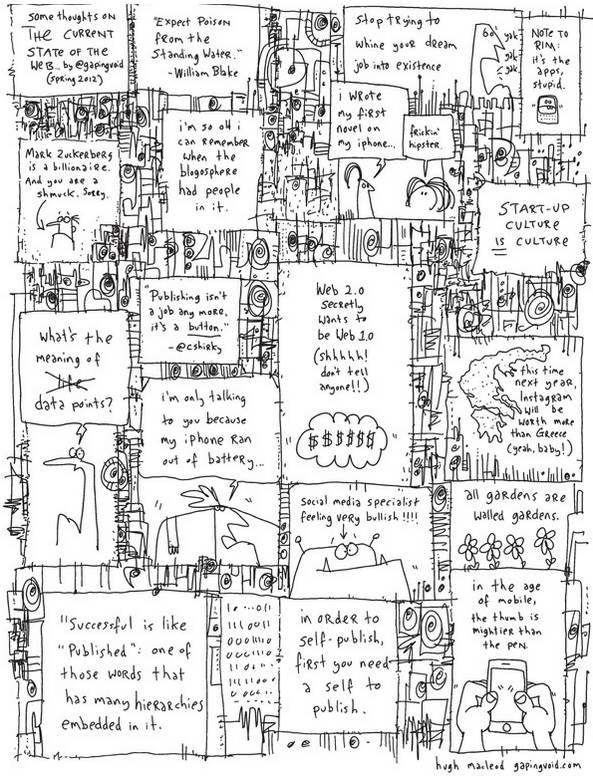 some thoughts on
THE CURRENT
STATE OF THE
WEB... by @gapingvoid
(spring 2012)
"Expect Poison
from the
Standing Water."
- William Blake
Stop trying to
whine your dream
job into existence
yak
yak
yak
NOTE TO
RIM:
it's the
apps,
stupid.
Mark Zuckerberg
is a billionaire.
And you are a
shmuck. Sorry.
i'm so old i
can remember
when the
blogosphere
had people
in it.
i wrote
my first
novel on
my iphone...
frickin'
hipster.
START-UP
CULTURE
IS CULTURE
"Publishing isn't
a job any more,
it's a button."
- @cshirky
Web 2.0
Secretly
wants to
be Web 1.0
(shhhhh!
don't tell
anyone!!)
$$$$$$
What's the
meaning of
life
data points?
this time
next year,
Instagram
will be
worth more
than Greece
(yeah, baby!)
i'm only talking
to you because
my iPhone ran
out of battery...
social media specialist
feeling very bullish !!!!
all gardens are
walled gardens.
"Successful is like
"Published": one of
those words that
has many hierarchies
embedded in it.
in order to
self-publish,
first you need
a self to
publish.
in the age
of mobile,
the thumb is
mightier than
the pen.
hugh macleod gapingvoid.com